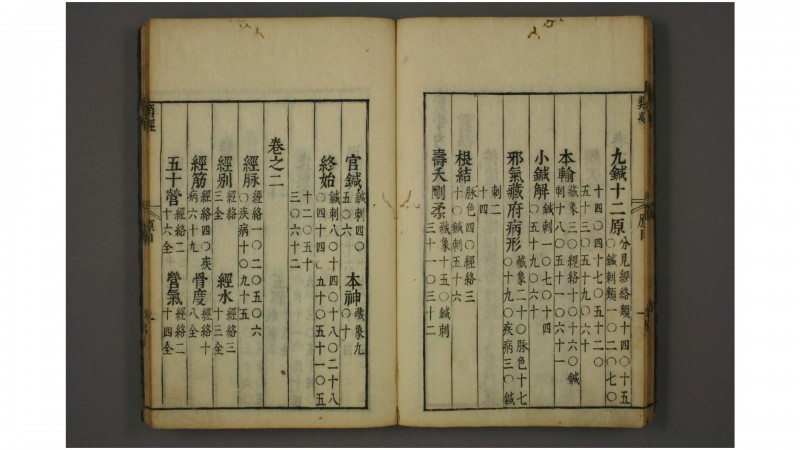 九鍼十二原 分見經絡類十四○十五
○鍼刺類一○二○七○
十四○四十七○五十二○
五十三○五十九○六十
本輸 藏象三○經絡十○十六○鍼
刺十八○五十一○六十一
小鍼解 鍼刺一○七○十四
○五十九○六十
邪氣藏府病形 藏象二十○脉色十七
○十九○疾病三○鍼
刺二
十四
根結 脉色四○經絡三
十○鍼刺五十六
壽夭剛柔 藏象十五○鍼刺
三十一○三十二
類經
原目
官鍼 鍼刺四○
五○六
本神 藏象九
○十
終始 鍼刺八○十四○十八○二十八
○四十四○五十○五十一○五
十二○五十
三○六十二
卷之二
經脉 經絡一○二○五○六
○疾病十○九十五
經别 經絡
三全
經水 經絡三
十三全
經筋 經絡四○疾
病六十九
骨度 經絡十
八全
五十營 經絡二
十六全
營氣 經絡二
十四全
類經
原目